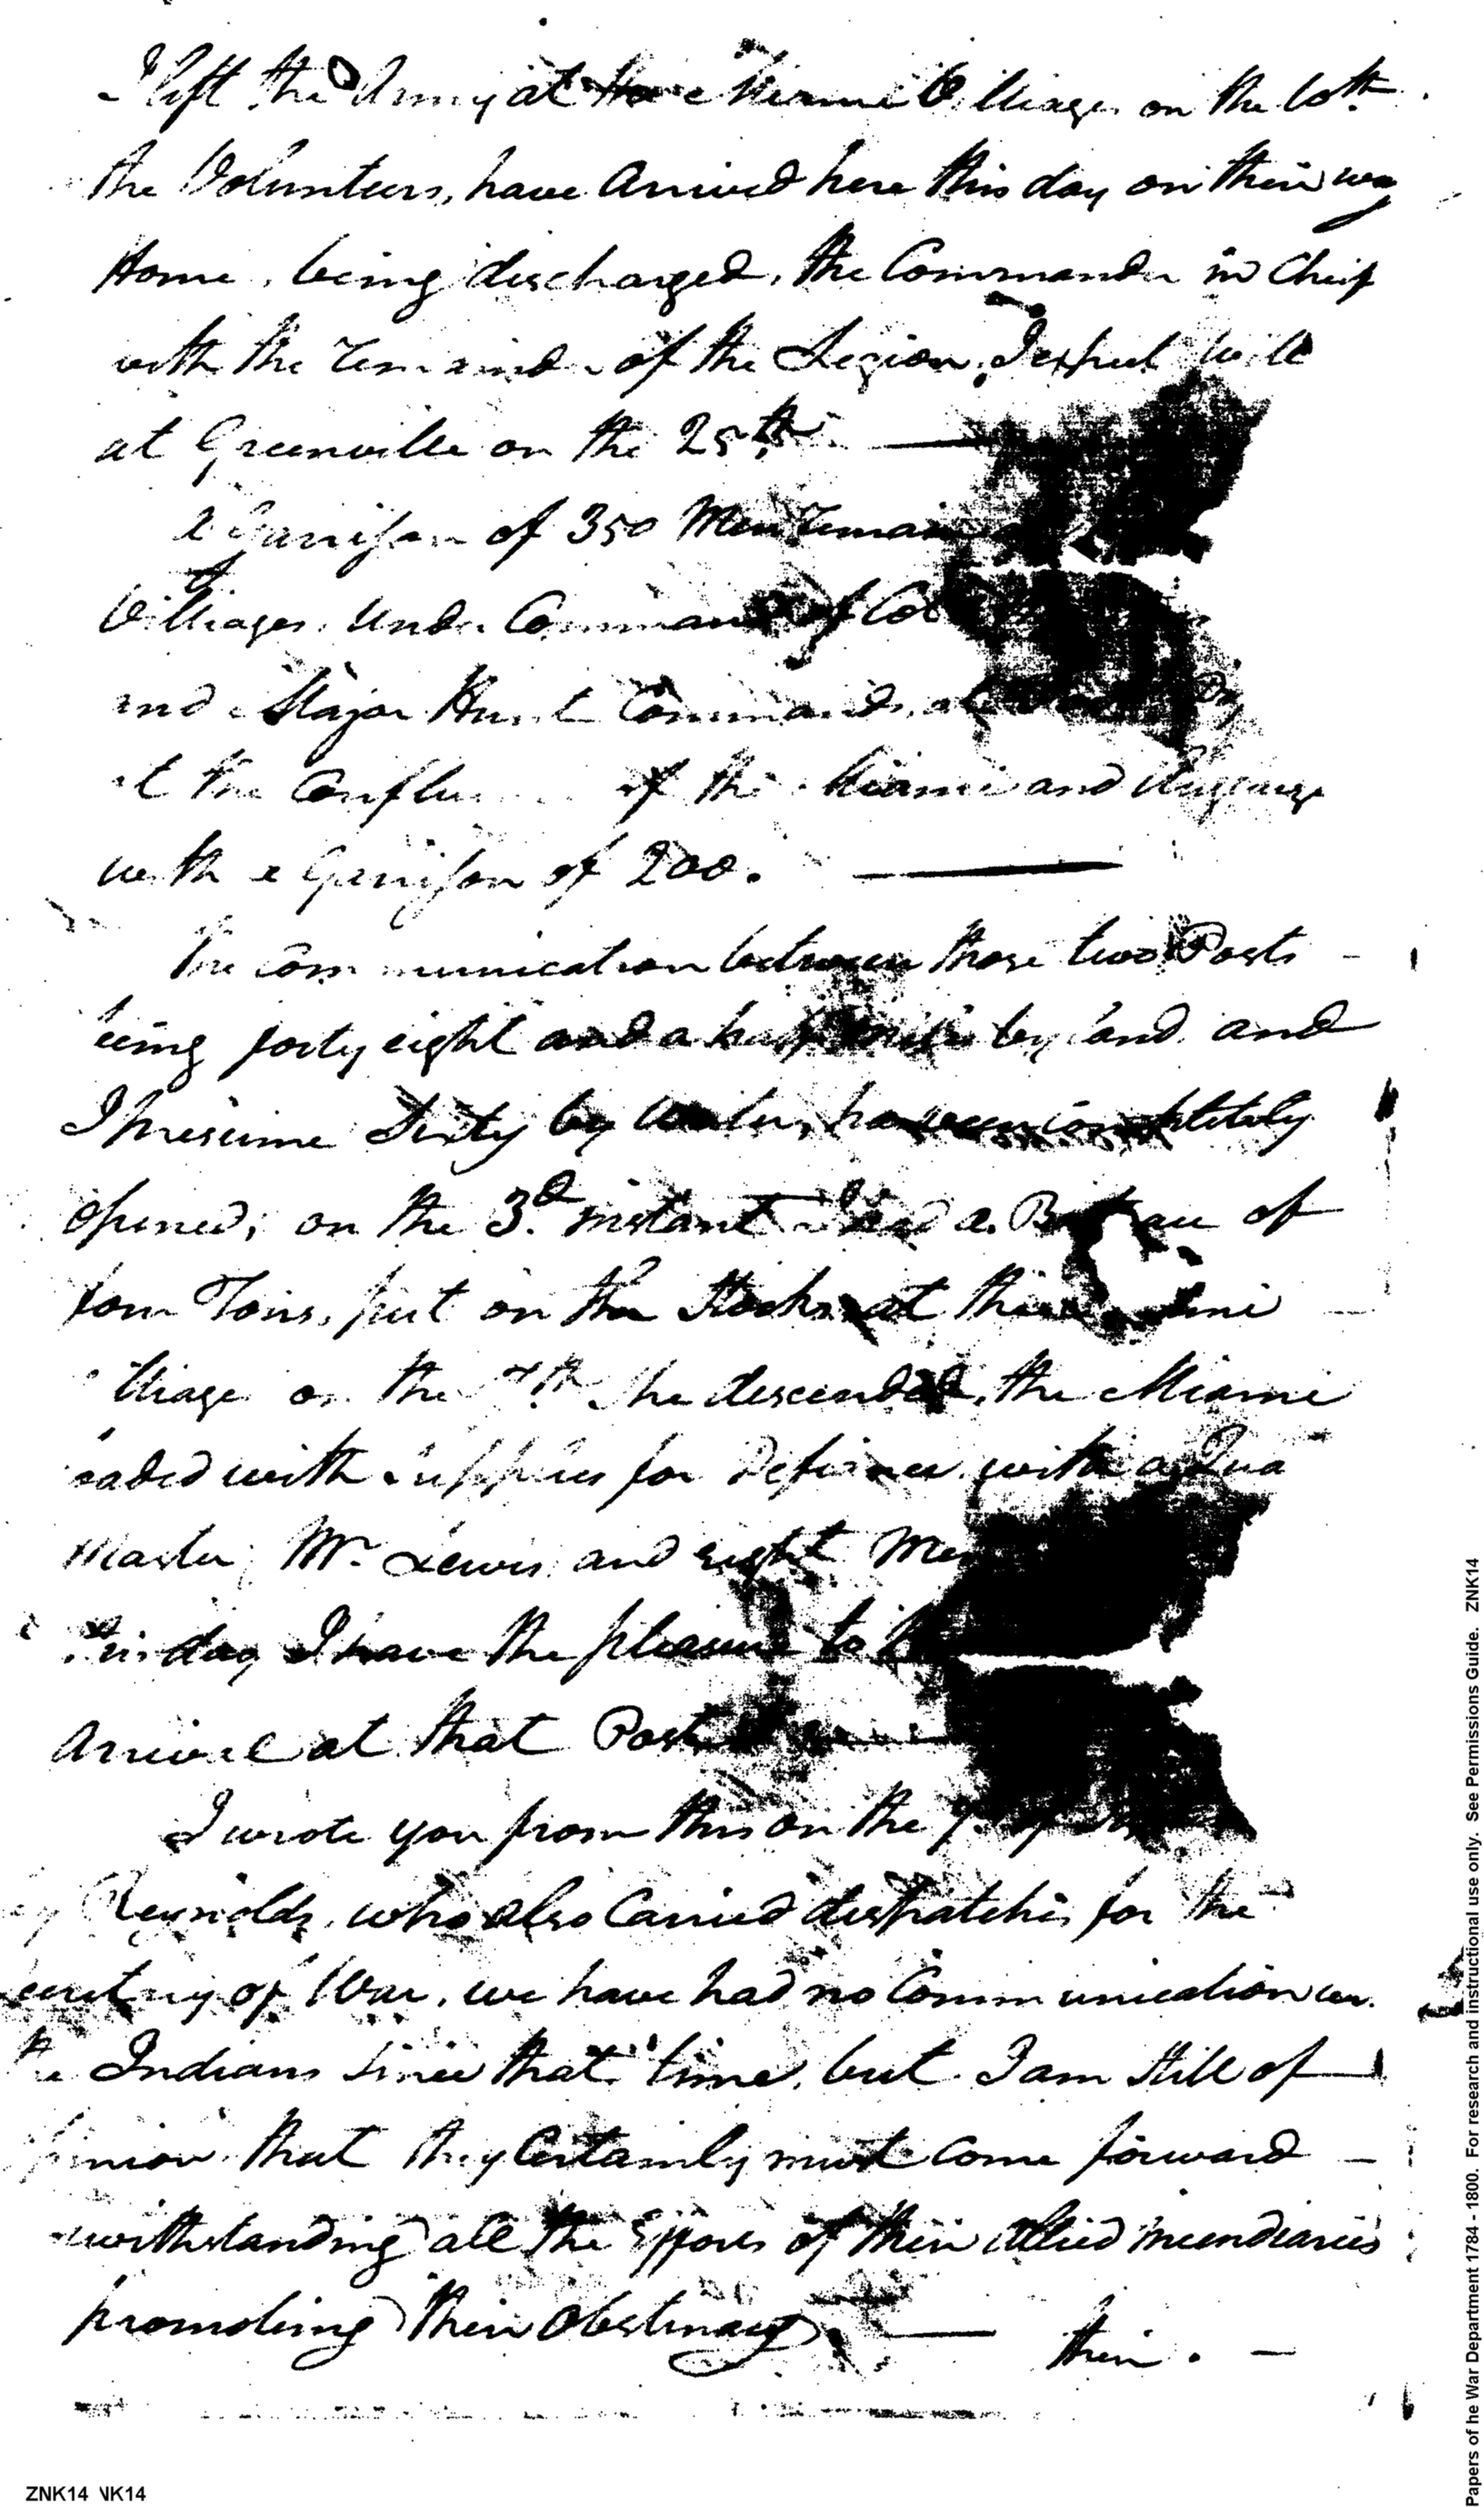 I left the Army at the Miami Villiages on the 10th.
the Volunteers, have Arrived here this day on their way
Home, being discharged, the Commander in Cheif
with the remainder of the Legion, I expect will
at Greenville on the 25th. —
a Garrison of 350 Men remain
Villiages, under Command of Col
and Major Hunt Commands at
at the Conflu of the Miami and Auglaize
with a Garrison of 200. —
The communication between those two Posts —
being forty eight and a half miles by land, and
I presume Sixty by Water, has been completely
opened; on the 3d. instant I had a Batteau of
four Tons, put on the Stocks at the
Villiage on the 7th. she descended, the Miami
loaded with supplies for Defiance with a Qua
Master, Mr. Lewis, and eight Men
this day I have the pleasure to
Arrival at that Post
I wrote you from this on the
by Reynolds, who also Carried dispatches for the
of War, we have had no Communication
the Indians since that time, but I am still of
opinion that they Certainly must come forward —
withstanding all the Efforts of their allied incendiaries
promoting their Obstinacy — their. —
Papers of he War Department 1784 - 1800. For research and instructional use only. See Permissions Guide. ZNK14
ZNK14 \K14